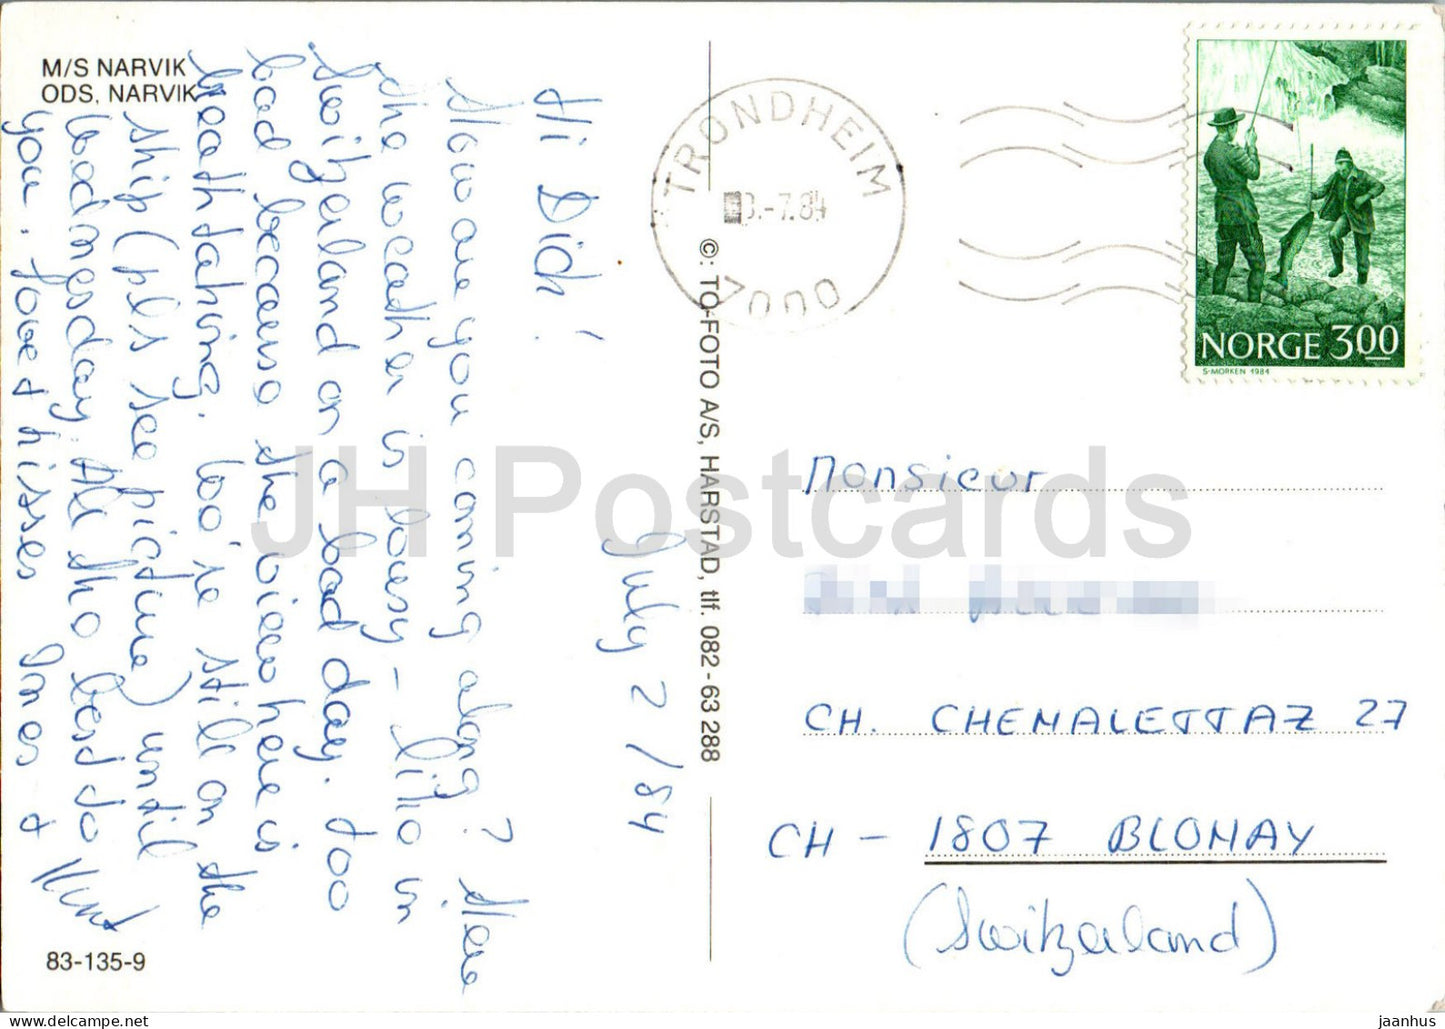 M/S NARVIK
ODS, NARVIK
July 2/84
Hi Dick!
How are you coming along? Here
the weather is lousy - like in
Switzerland on a bad day. Too
bad because the view here is
breathtaking. We're still on the
ship (pls see picture) until
Wednesday. All the best to
you. Love & kisses Ines &
Kurt
83-135-9
©: TO-FOTO A/S, HARSTAD, tlf. 082 - 63 288
TRONDHEIM
3.-7.84
7000
NORGE 3.00
S. MORKEN 1984
Monsieur
CH. CHEMALETTAZ 27
CH - 1807 BLONAY
(Switzerland)
JH Postcards
jaanhus